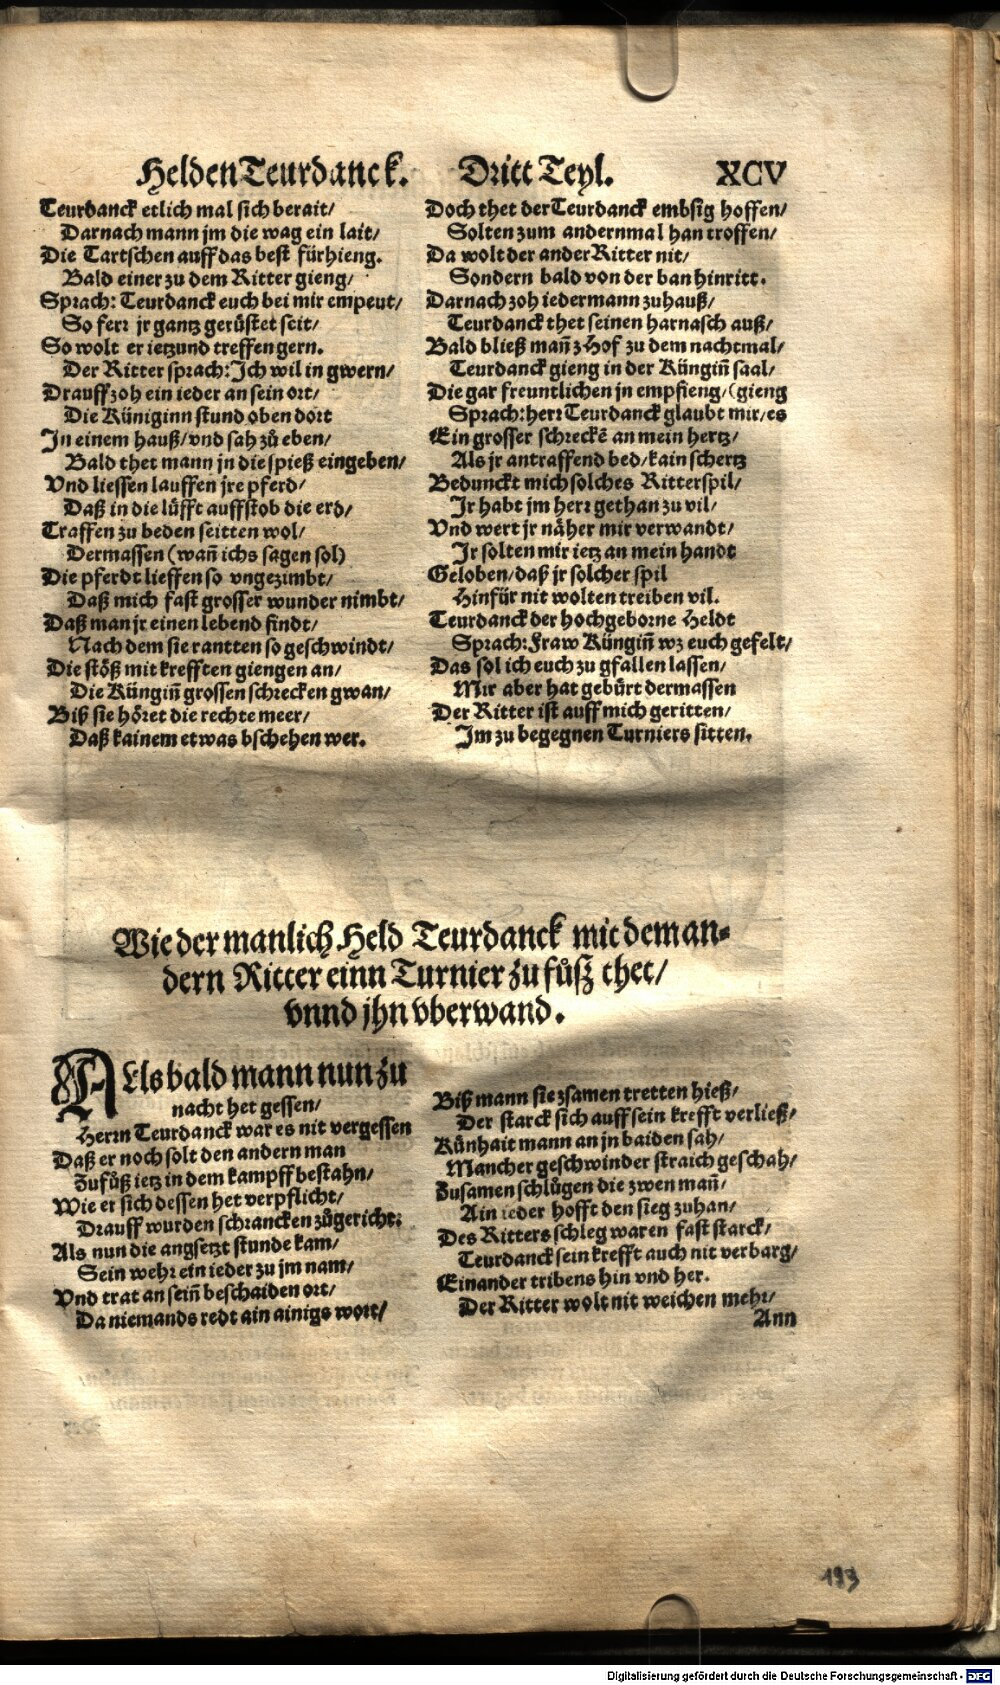 Helden Teurdanck. Dritt Teyl. XCV
Teurdanck etlich mal sich berait/
Darnach mann jm die wag ein lait/
Die Tartschen auff das best fürhieng.
Bald einer zu dem Ritter gieng/
Sprach: Teurdanck euch bei mir empeut/
So ferr jr gantz gerüstet seit/
So wolt er ietzund treffen gern.
Der Ritter sprach: Ich wil in gwern/
Drauff zoh ein ieder an sein ort/
Die Küniginn stund oben dort
In einem hauß/ vnd sah zů eben/
Bald thet mann jn die spieß eingeben/
Vnd liessen lauffen jre pferd/
Daß in die lüfft auffstob die erd/
Traffen zu beden seitten wol/
Dermassen (wañ ichs sagen sol)
Die pferdt lieffen so vngezimbt/
Daß mich fast grosser wunder nimbt/
Daß man jr einen lebend findt/
Nach dem sie rantten so geschwindt/
Die stöß mit krefften giengen an/
Die Küngiñ grossen schrecken gwan/
Biß sie höret die rechte meer/
Daß kainem etwas bschehen wer.
Doch thet der Teurdanck embsig hoffen/
Solten zum andernmal han troffen/
Da wolt der ander Ritter nit/
Sondern bald von der ban hinritt.
Darnach zoh iedermann zuhauß/
Teurdanck thet seinen harnasch auß/
Bald bließ mañ z Hof zu dem nachtmal/
Teurdanck gieng in der Küngiñ saal/
Die gar freuntlichen jn empfieng/ (gieng
Sprach: herr Teurdanck glaubt mir/ es
Ein grosser schreckē an mein hertz/
Als jr antraffend bed/ kain schertz
Bedunckt mich solches Ritterspil/
Ir habt jm herr gethan zu vil/
Vnd wert jr näher mir verwandt/
Ir solten mir ietz an mein handt
Geloben/ daß jr solcher spil
Hinfür nit wolten treiben vil.
Teurdanck der hochgeborne Heldt
Sprach: Fraw Küngiñ wz euch gefelt/
Das sol ich euch zu gfallen lassen/
Mir aber hat gebürt dermassen
Der Ritter ist auff mich geritten/
Im zu begegnen Turniers sitten.
Wie der manlich Held Teurdanck mit dem an=
dern Ritter einn Turnier zu fůß thet/
vnnd jhn vberwand.
ALs bald mann nun zu
nacht het gessen/
Herrn Teurdanck war es nit vergessen
Daß er noch solt den andern man
Zu fůß ietz in dem kampff bestahn/
Wie er sich dessen het verpflicht/
Drauff wurden schrancken zůgericht:
Als nun die angsetzt stunde kam/
Sein wehr ein ieder zu jm nam/
Vnd trat an seiñ beschaiden ort/
Da niemands redt ain ainigs wort/
Biß mann sie zsamen tretten hieß/
Der starck sich auff sein krefft verließ/
Künhait mann an jn baiden sah/
Mancher geschwinder straich geschah/
Zusamen schlůgen die zwen mañ/
Ain ieder hofft den sieg zuhan/
Des Ritters schleg waren fast starck/
Teurdanck sein krefft auch nit verbarg/
Einander tribens hin vnd her.
Der Ritter wolt nit weichen mehr/
Ann
193
Digitalisierung gefördert durch die Deutsche Forschungsgemeinschaft - DFG